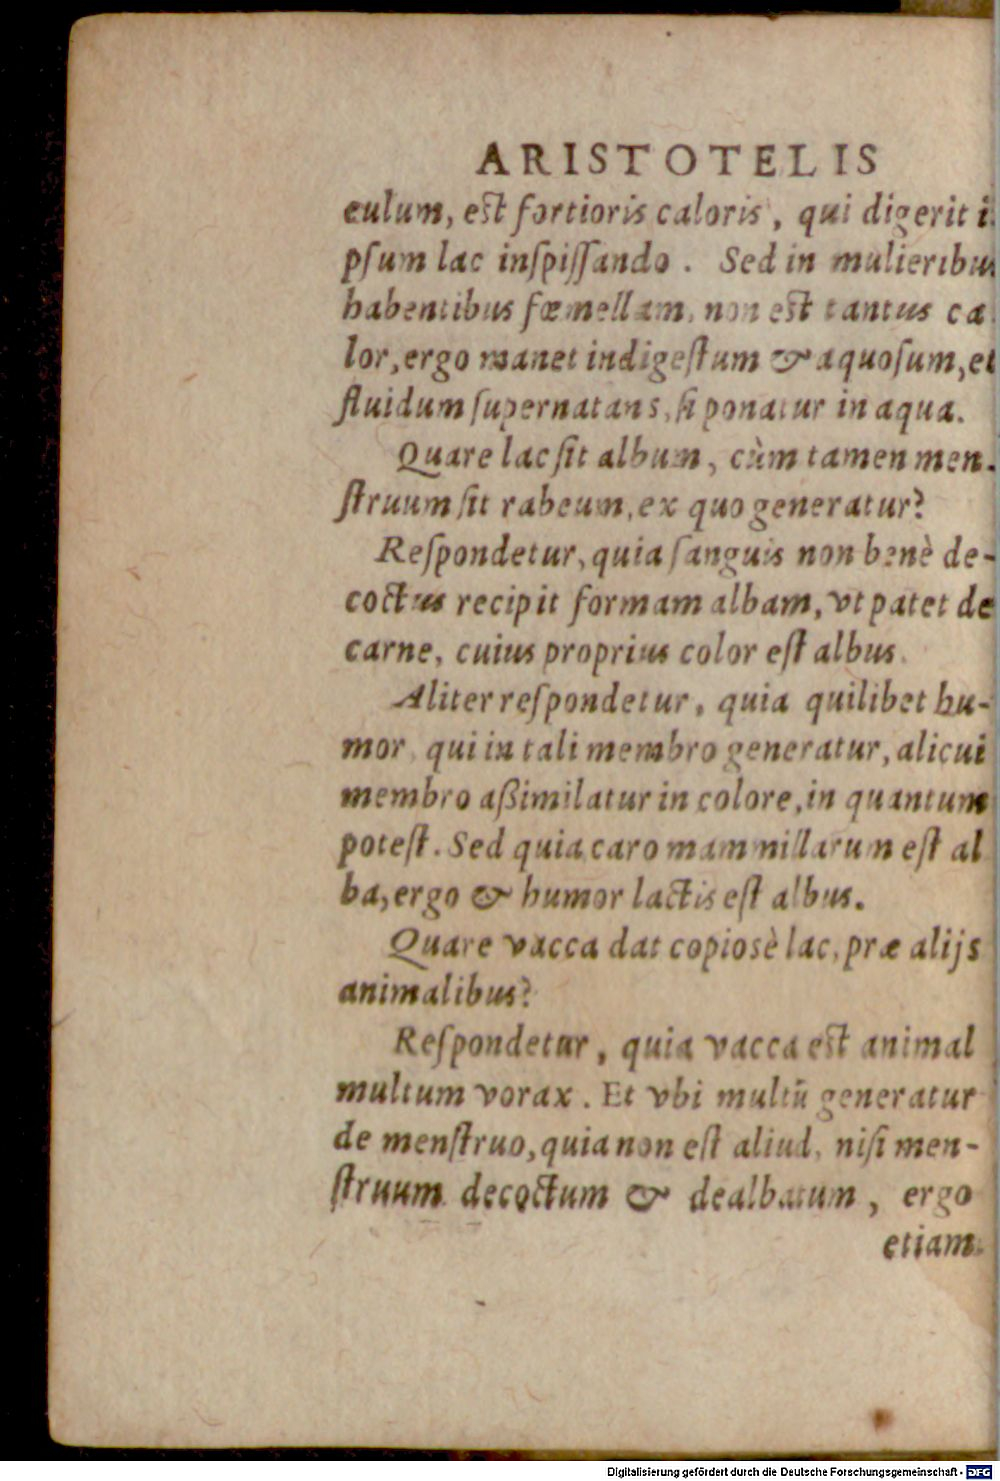 ARISTOTELIS
culum, est fortioris caloris, qui digerit i
psum lac inspissando. Sed in mulieribus
habentibus fœmellam, non est tantus ca
lor, ergo manet indigestum & aquosum, et
fluidum supernatans, si ponatur in aqua.
Quare lac sit album, cùm tamen men-
struum sit rubeum, ex quo generatur?
Respondetur, quia sanguis non benè de-
coctus recipit formam albam, vt patet de
carne, cuius proprius color est albus.
Aliter respondetur, quia quilibet hu-
mor, qui in tali membro generatur, alicui
membro aßimilatur in colore, in quantum
potest. Sed quia caro mammillarum est al
ba, ergo & humor lactis est albus.
Quare vacca dat copiosè lac, præ alijs
animalibus?
Respondetur, quia vacca est animal
multum vorax. Et vbi multũ generatur
de menstruo, quia non est aliud, nisi men-
struum decoctum & dealbatum, ergo
etiam
Digitalisierung gefördert durch die Deutsche Forschungsgemeinschaft - DFG